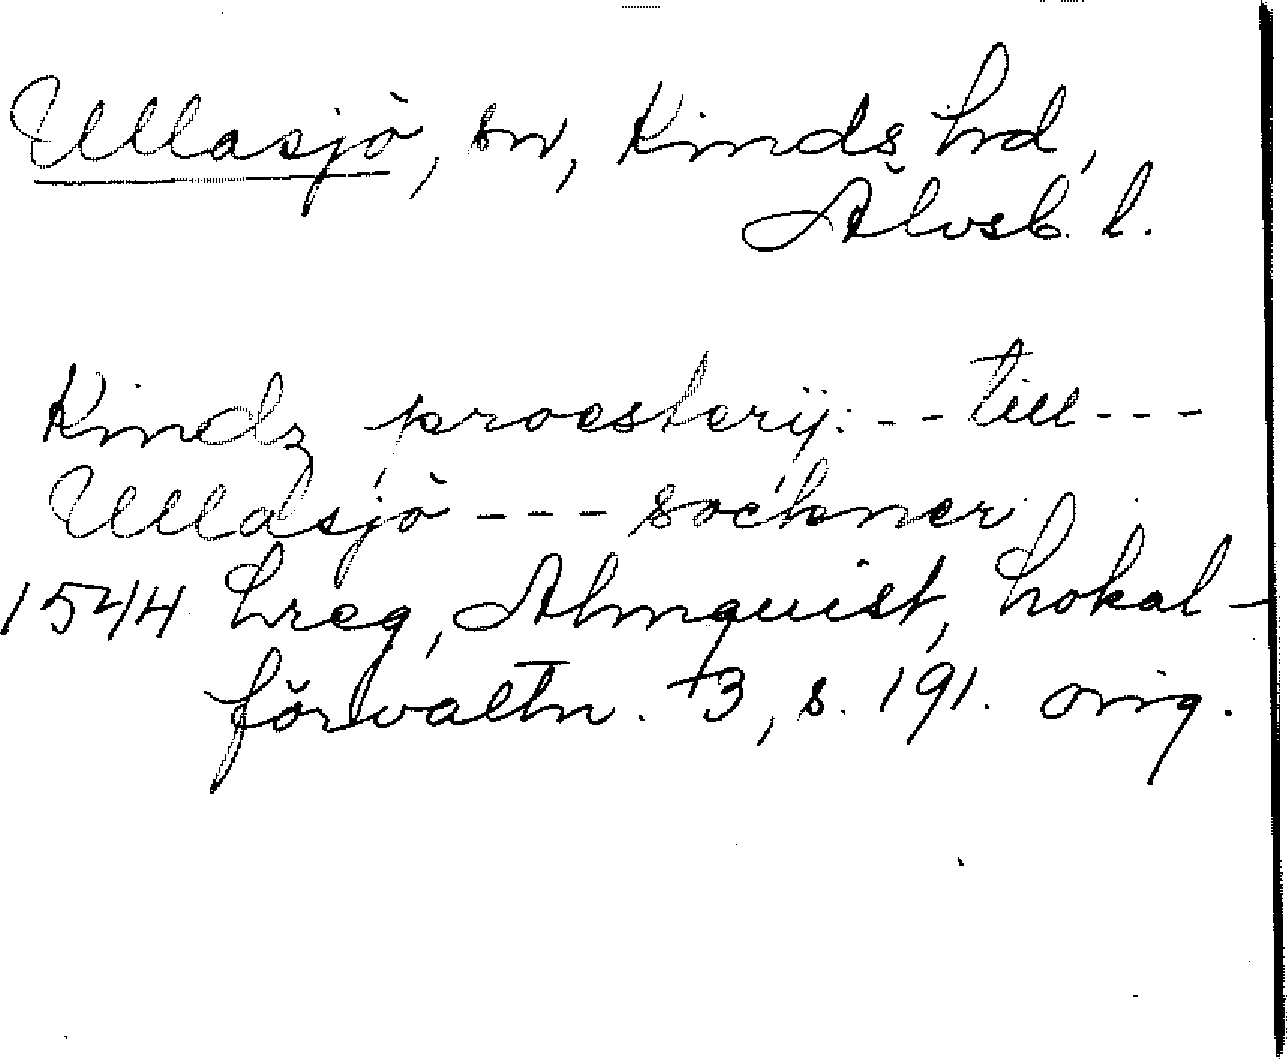 Ullasjö, sn, Kinds hd,
Älvsb. l.
Kindz proesterij: - - till - - -
Ullasjö - - - sochner
1544 Lreg, Almquist, Lokal-
förvaltn. +3, s. 191. orig.